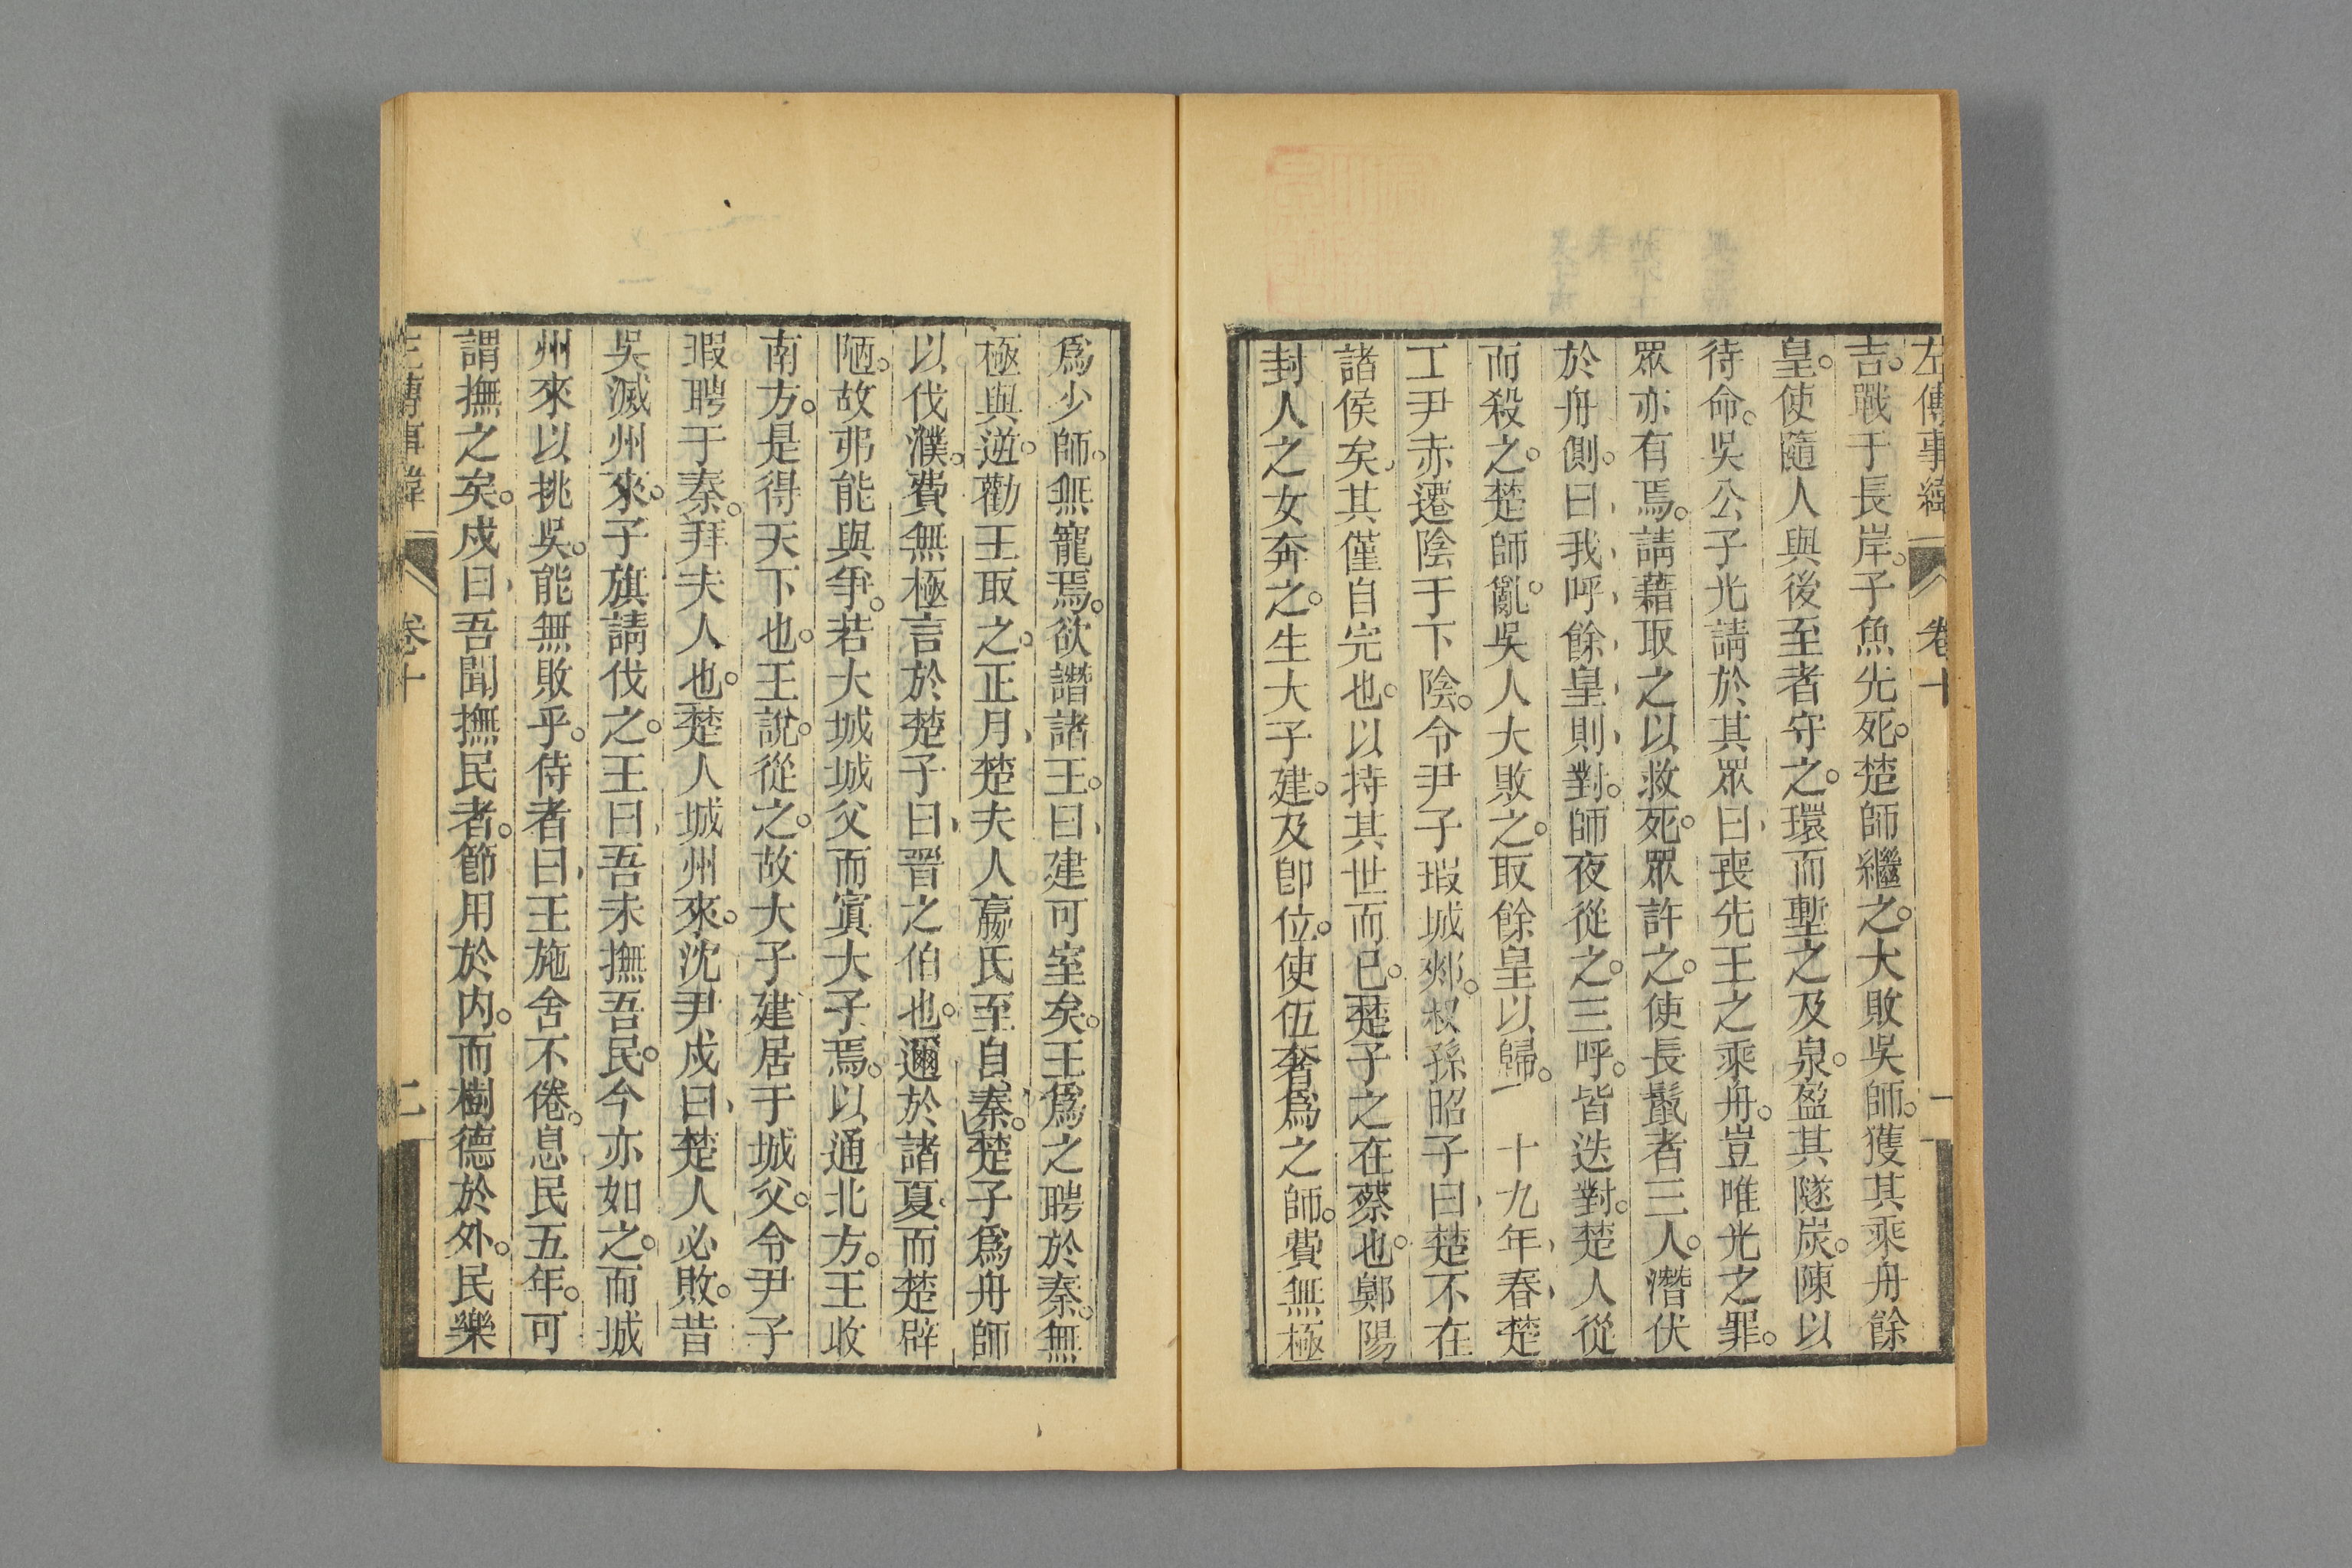 左傳事緯 卷十 一
吉。戰于長岸。子魚先死。楚師繼之。大敗吳師。獲其乘舟餘
皇。使隨人與後至者守之。環而塹之及泉。盈其隧炭。陳以
待命。吳公子光請於其眾曰、喪先王之乘舟。豈唯光之罪。
眾亦有焉。請藉取之以救死。眾許之。使長鬣者三人。潛伏
於舟側。曰、我呼、餘皇、則、對。師夜從之。三呼。皆迭對。楚人從
而殺之。楚師亂。吳人大敗之。取餘皇以歸。 十九年、春、楚
工尹赤遷陰于下陰。令尹子瑕城郟。叔孫昭子曰、楚不在
諸侯矣、其僅自完也。以持其世而已。楚子之在蔡也。鄓陽
封人之女奔之。生大子建。及卽位。使伍奢爲之師。費無極
爲少師。無寵焉。欲譖諸王。曰、建可室矣。王爲之聘於秦。無
極與逆。勸王取之。正月、楚夫人嬴氏至自秦。楚子爲舟師
以伐濮。費無極言於楚子曰、晉之伯也。邇於諸夏。而楚辟
陋。故弗能與爭。若大城城父而寘大子焉。以通北方。王收
南方。是得天下也。王說。從之。故大子建居于城父。令尹子
瑕聘于秦。拜夫人也。楚人城州來。沈尹戌曰、楚人必敗。昔
吳滅州來。子旗請伐之。王曰、吾未撫吾民。今亦如之。而城
州來以挑吳。能無敗乎。侍者曰、王施舍不倦。息民五年。可
謂撫之矣。戌曰、吾聞撫民者。節用於內。而樹德於外。民樂
左傳事緯 卷十